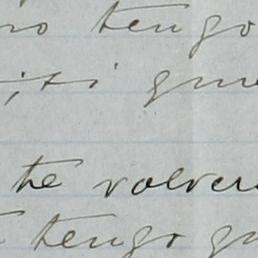 no tengo
iti que
the volver
tengo qu